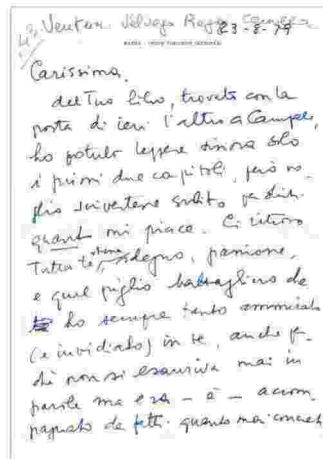 Ventura Selvaggia Raggi Camilla
23-8-79
Carissima,
del Tuo libro, trovato con la
posta di ieri l'altro a Campoli,
ho potuto leggere sinora solo
i primi due capitoli, però vo-
glio scrivertene subito per dirti
quanto mi piace. Ci ritrovo
Tutta te stessa, sdegno, passione,
e quel piglio battagliero che
ho sempre tanto ammirato
(e invidiato) in te, anche per-
ché non si esauriva mai in
parole ma era – è – accom-
pagnato da fatti quanto mai concreti